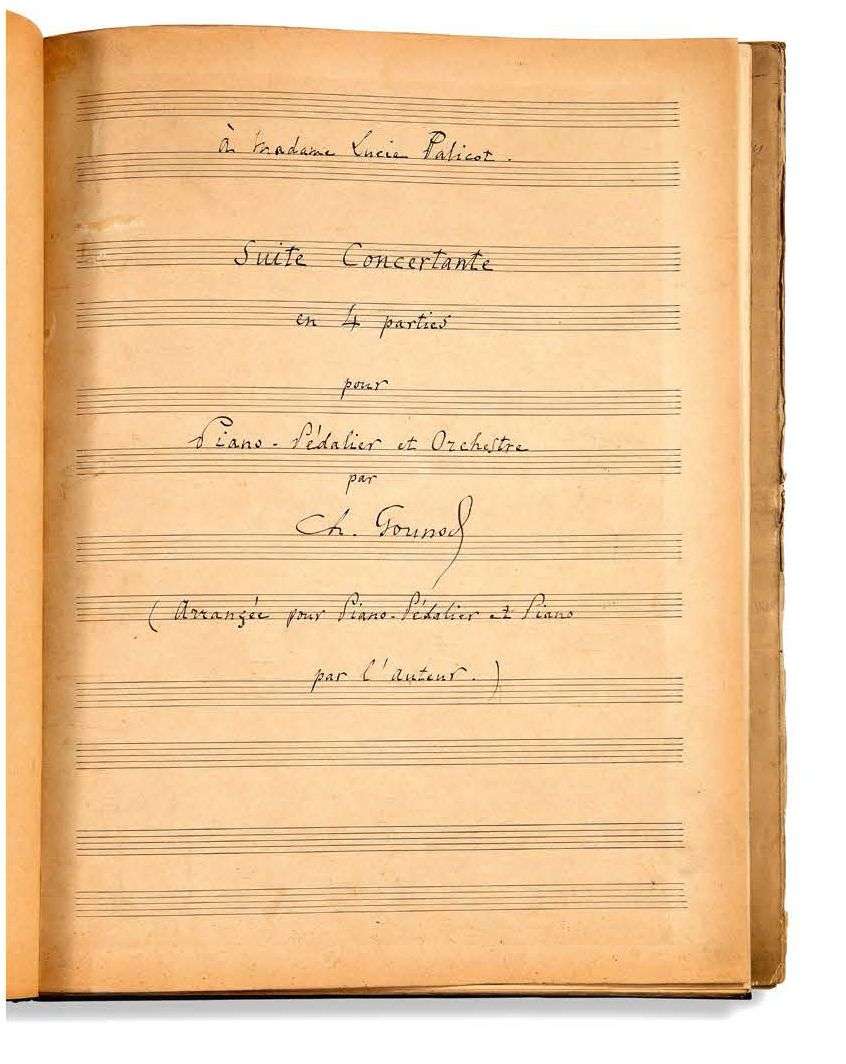 à Madame Lucie Palicot.
Suite Concertante
en 4 parties
pour
Piano-Pédalier et Orchestre
par
Ch. Gounod
(Arrangée pour Piano-Pédalier et Piano
par l'auteur.)